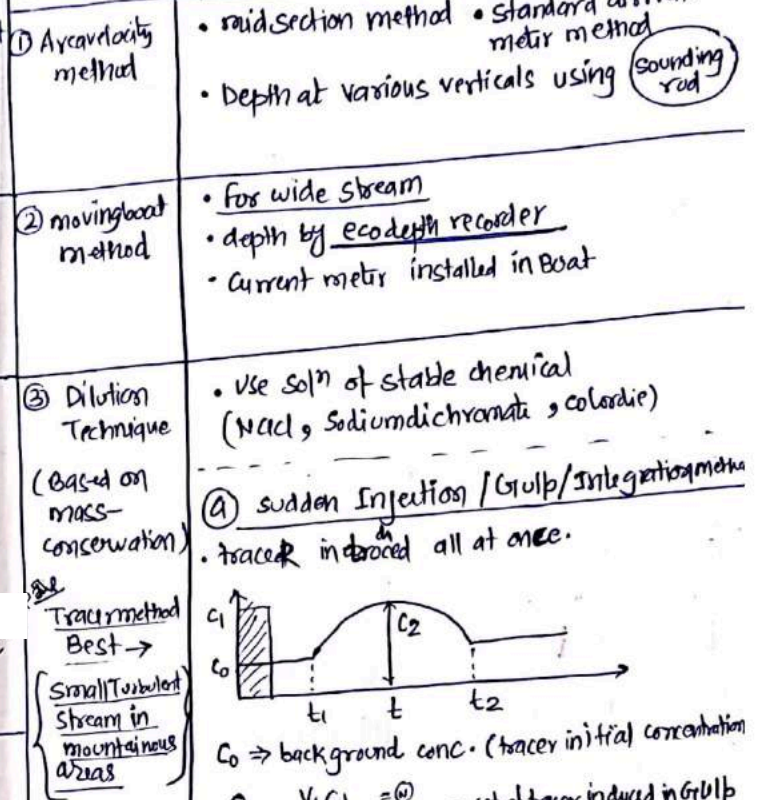 ① Areavelocity
method
• midsection method • Standard
meter method
• Depth at various verticals using sounding
rod
② movingboat
method
• For wide stream
• depth by ecodepth recorder
• Current meter installed in Boat
③ Dilution
Technique
(Based on
mass-
conservation)
Tracermethod
Best →
Small Turbulent
Stream in
mountainous
areas
• Use solⁿ of stable chemical
(Nacl, Sodiumdichromate, colordie)
ⓐ sudden Injection / Gulp / Integration
• tracer all at once.
C₁
C₂
C₀
t₁ t t₂
C₀ ⇒ background conc. (tracer initial concentration
induced in Gulb